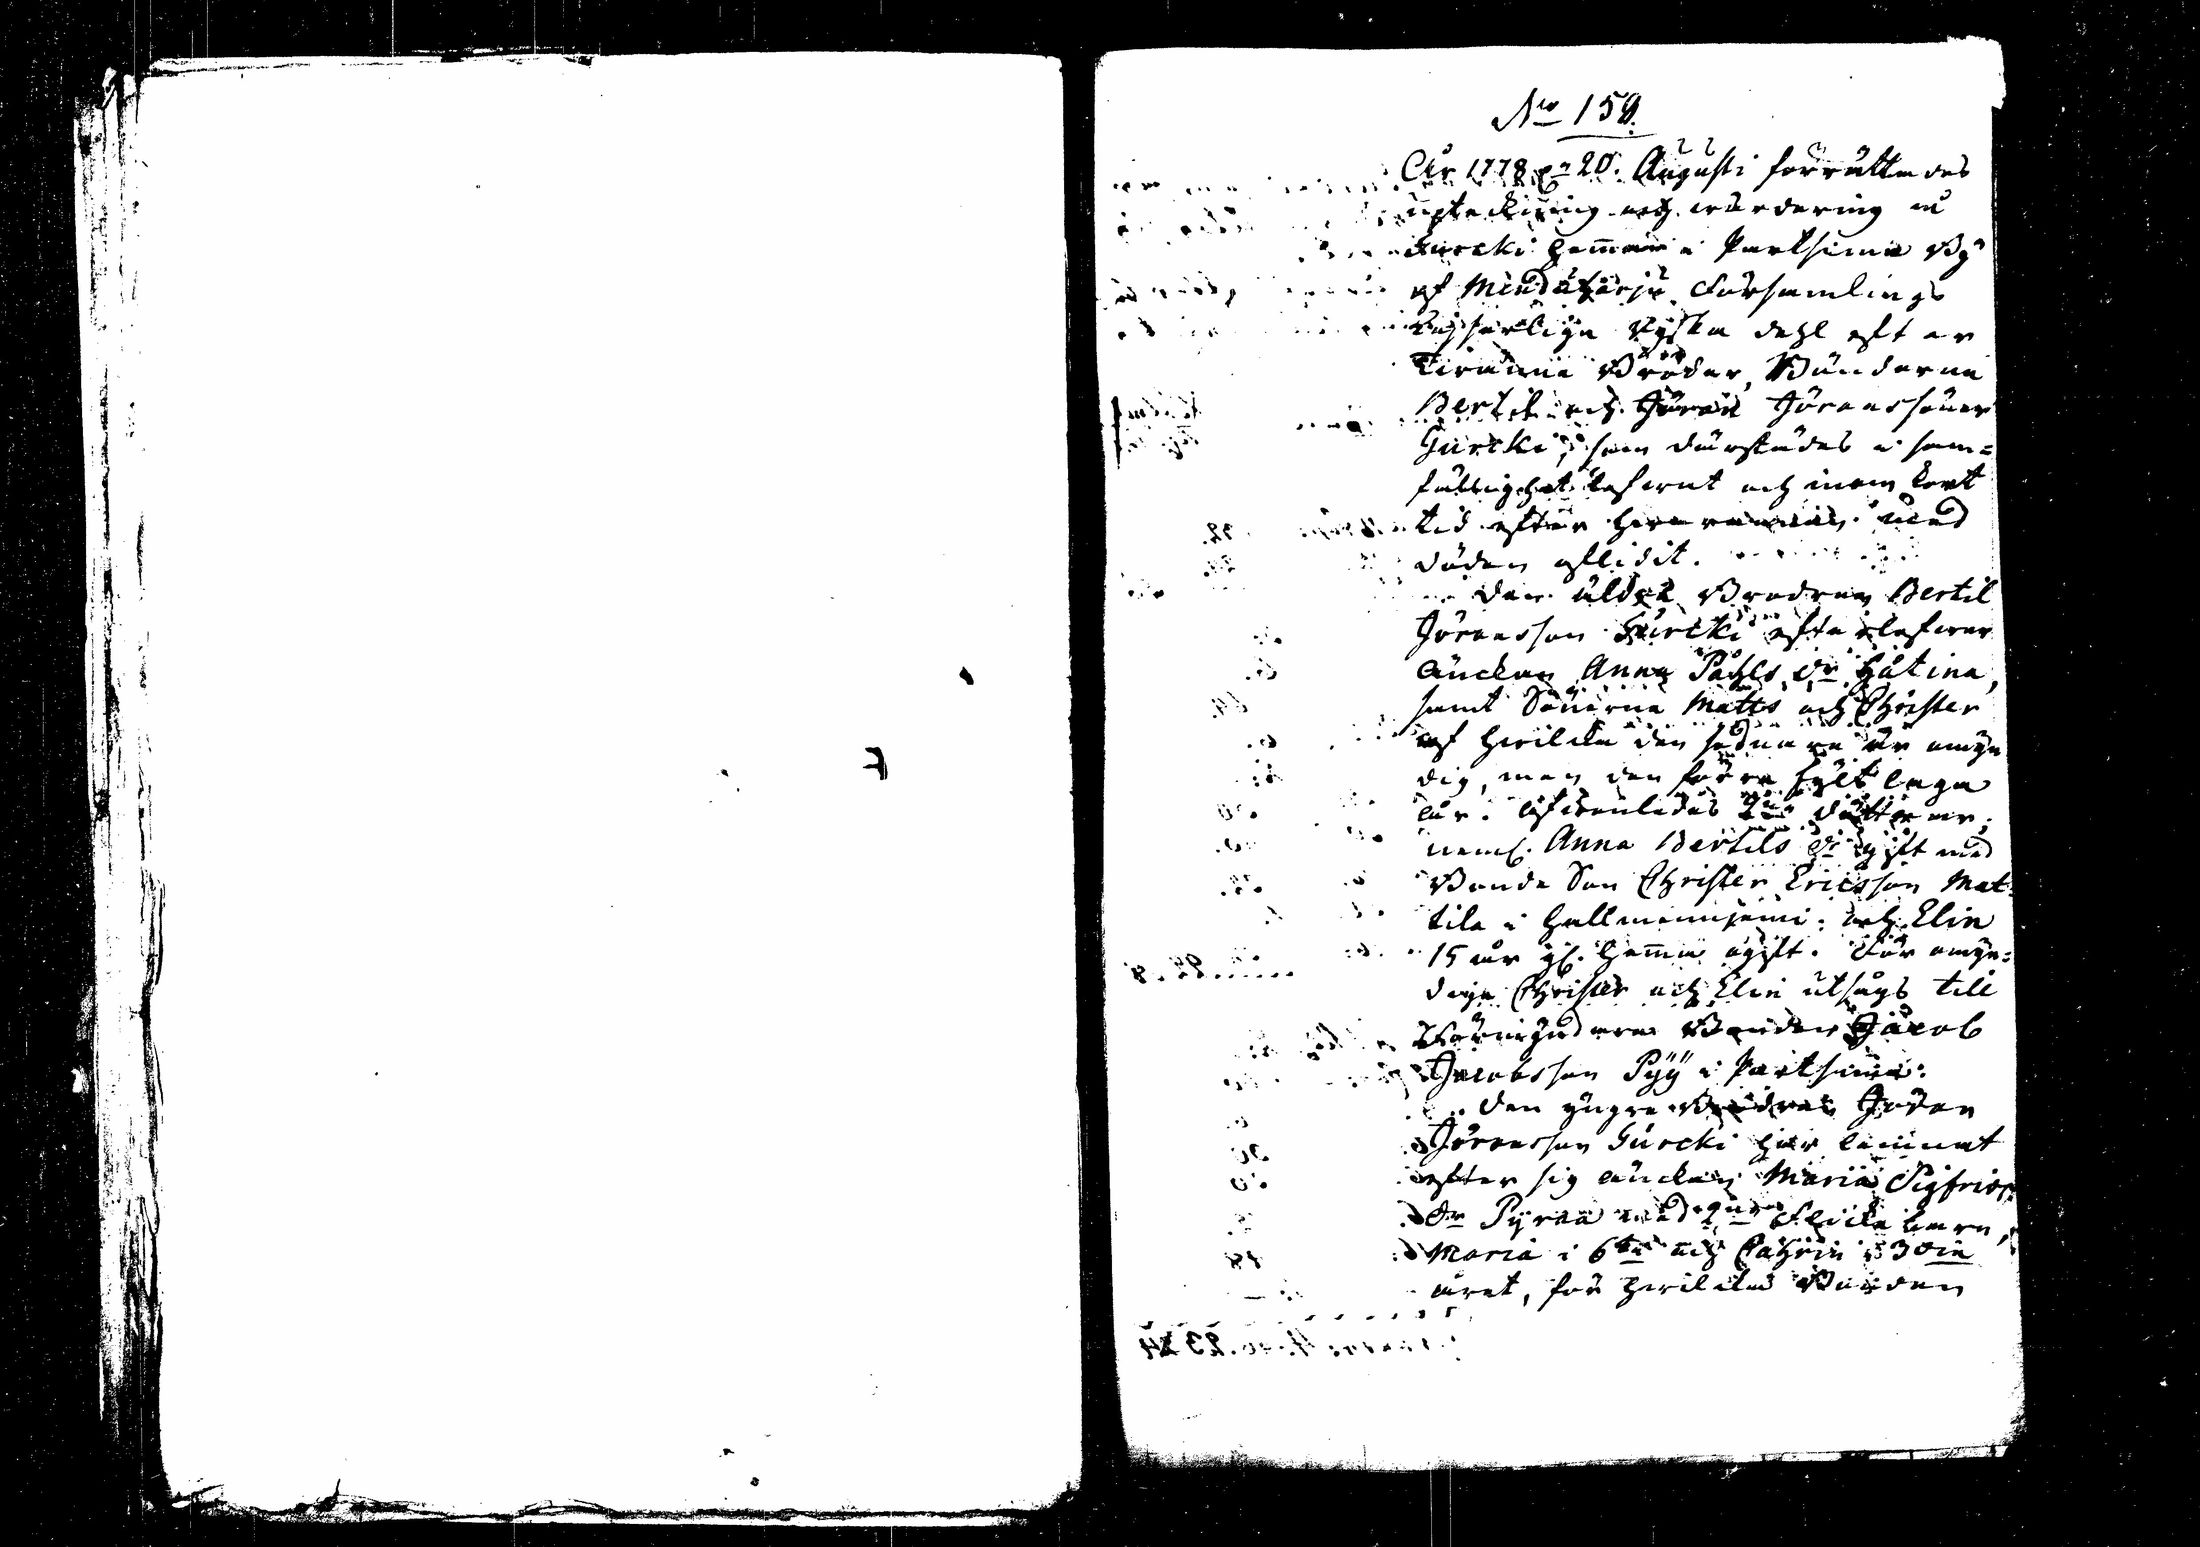 No 159.
År 1778 den 20. Augusti förrättades
upteckning och wärdering å
Gurcki hemman i Partsima By
af Mendüharju Församlings
Kejserliga Ryska dehl efter
Bröder, Bönderne
Bertil och Jöran Jöranssöner
Gurcki, som därstädes i sam=
fällighet lefwat och inom kort
tid efter hwarannan med
döden aflidit.
Den äldre Brodren Bertil
Jöransson Gurcki efterlefwer
änckan Anna Påhls dr Hätina,
samt Sönerne Matts och Christer
af hwilcka den sednare är omyn
dig, men den förre fylt laga
år. Äfwenledes 2ne döttrar,
neml. Anna Bertils dr gift med
Bonde Son Christer Ericsson Mat=
tila i Hallmanniemi och Elin
15 år gl. hemma ogift. För omyn=
dige Christer och Elin utsågs till
Förmyndare Bonden Jacob
Jacobsson Pyy i Partsima.
Den yngre Brodren Jöran
Jöransson Gurcki har lemnat
efter sig änckan Maria Sigfrids
dr Pyraa med 2ne Flicke barn,
Maria i 6te och Cathrin i 3die
året, för hwilcka Bonden